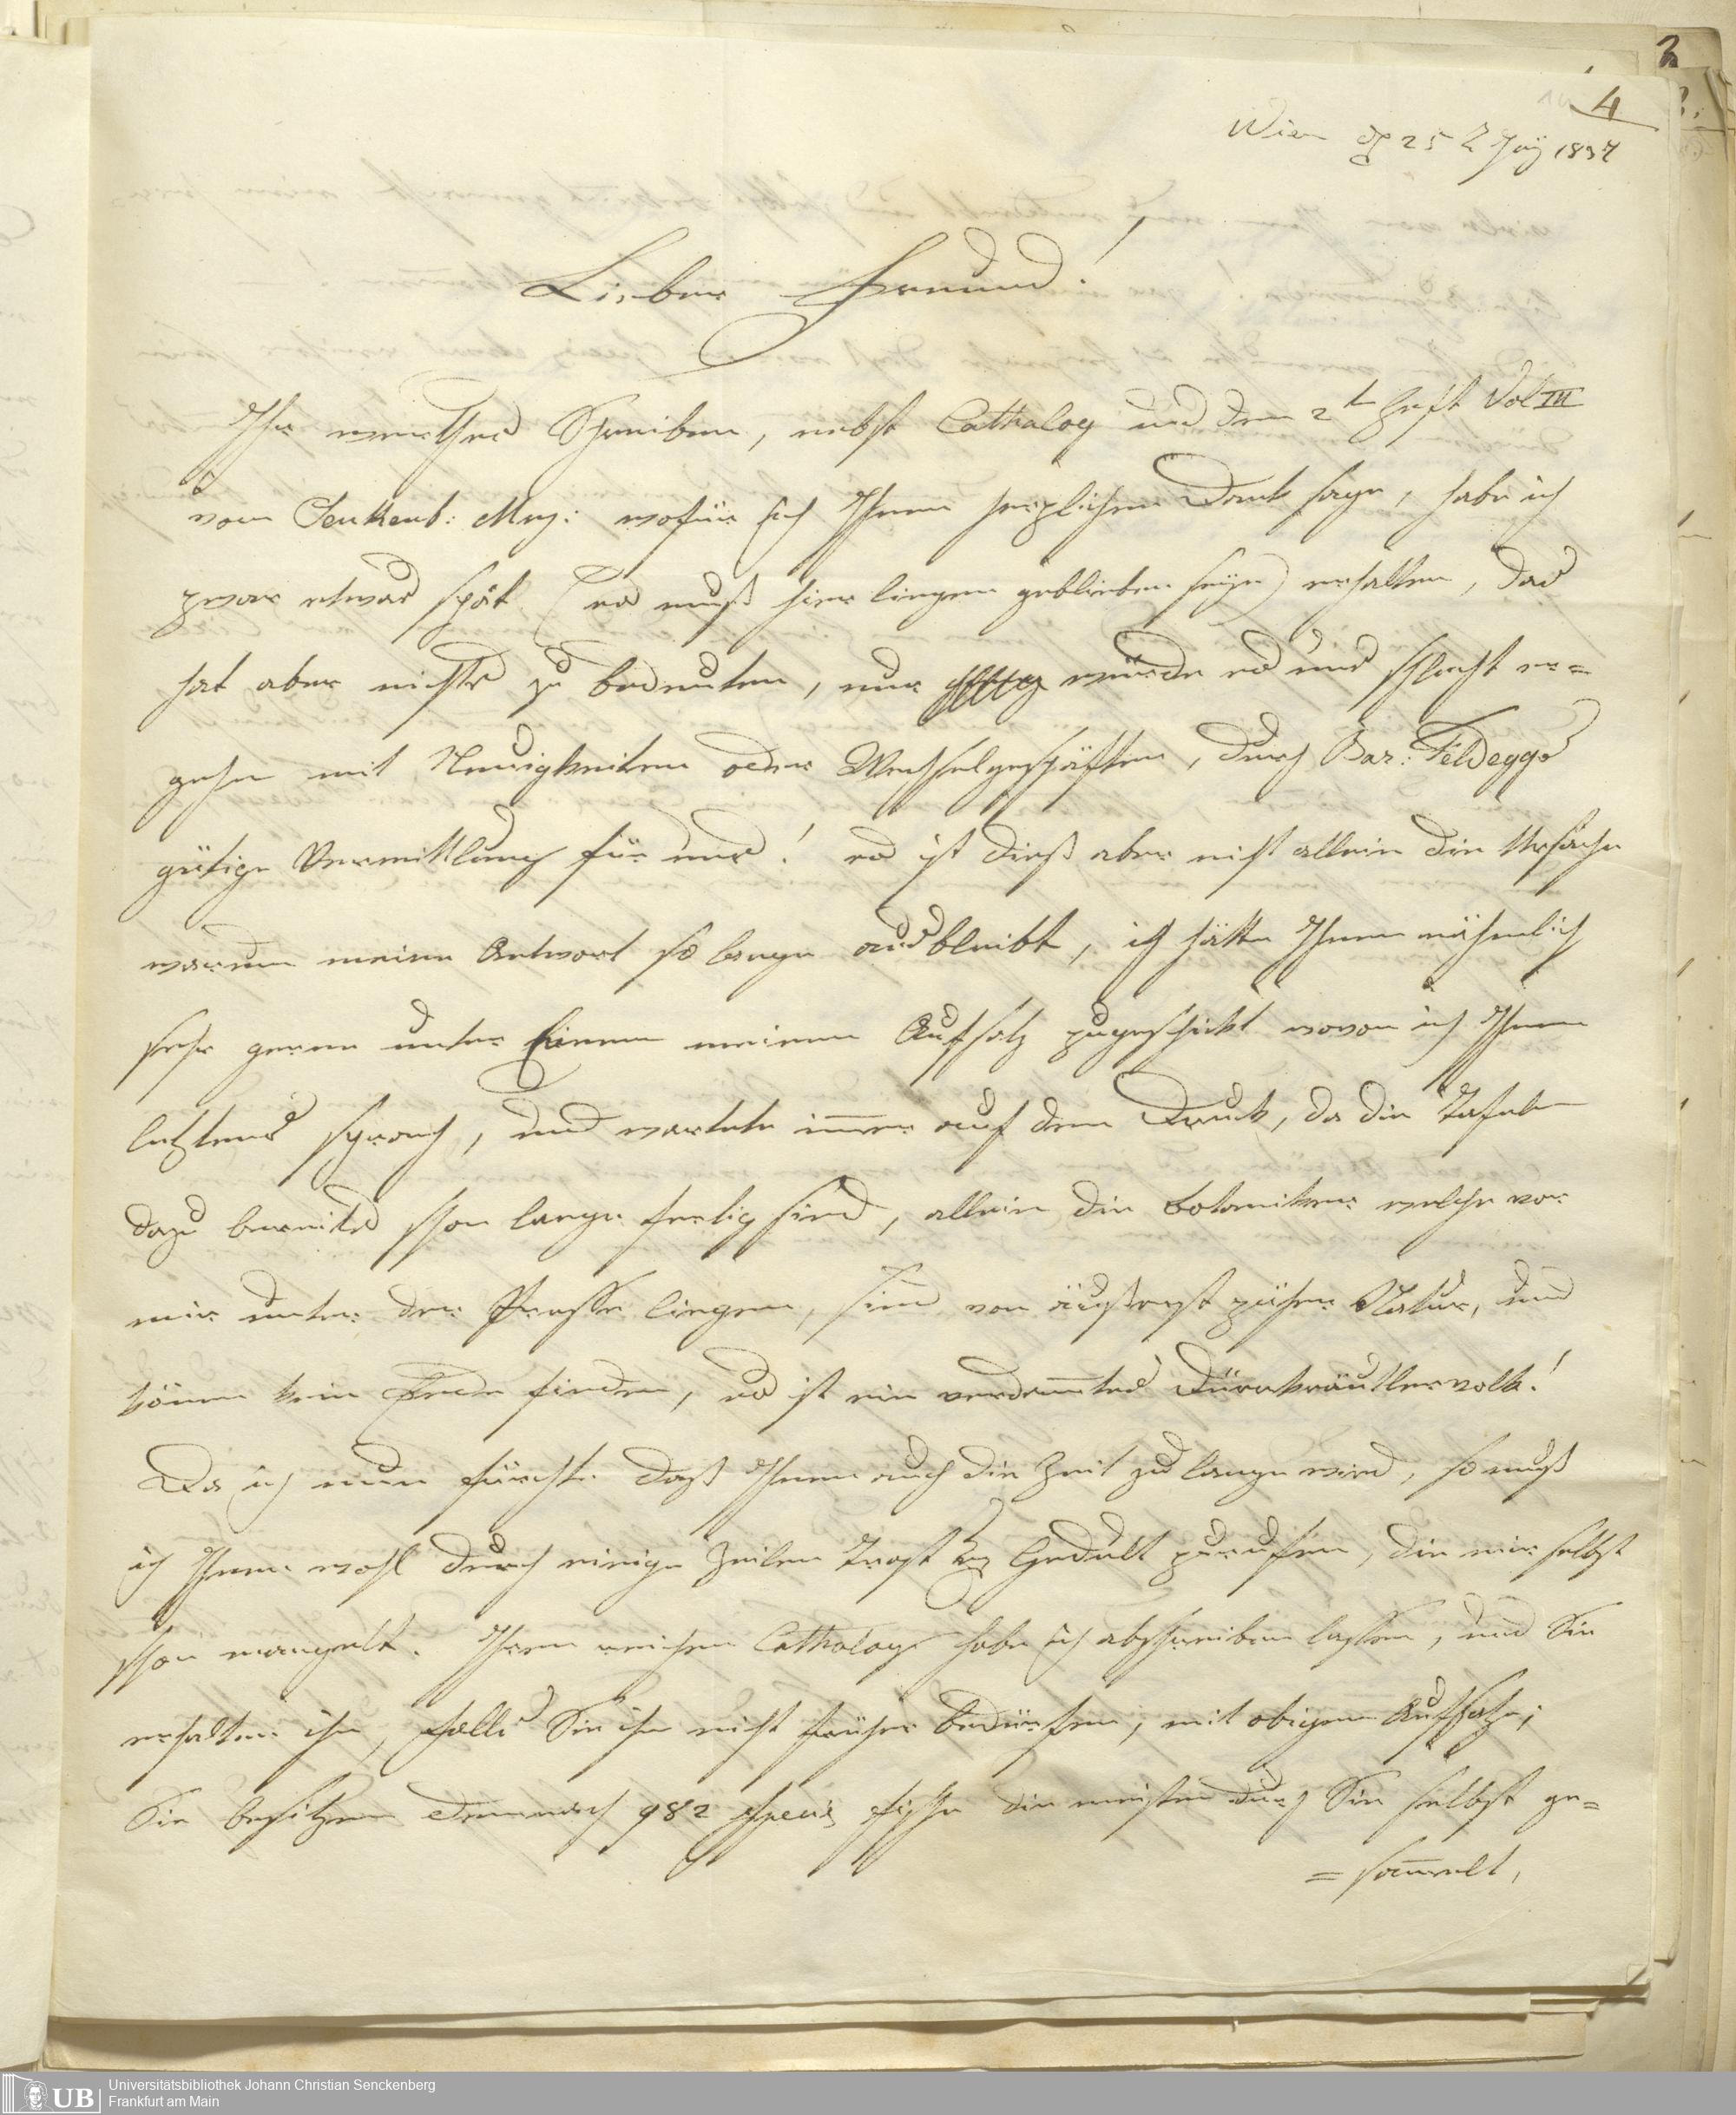 4
Wien d 25 July 1837
Lieber Freund!
Ihr werthes Schreiben, nebst Cathalog und dem 2t Heft Vol III
vom Senkenb: Mus: wofür ich Ihnen herzlichen Dank sage, habe ich
zwar etwas spät (es muß hier liegen geblieben seyn) erhalten, das
hat aber nichts zu bedeuten, nur würde es uns schlecht er=
gehen mit Neuigkeiten oder Wechselgeschäften, durch Bar: Feldeggs
gütige Vermittlung für uns! es ist dieß aber nicht allein die Ursache
warum meine Antwort so lange ausbleibt, ich hätte Ihnen nähmlich
sehr gerne unter Einem meinen Aufsatz zugeschickt wovon ich Ihnen
letztens sprach, und wartete im̅er auf den Druck, da die Tafeln
dazu bereits schon lange fertig sind, allein die Botaniker welche vor
mir unter der Presse liegen, sind von äußerst zäher Natur, und
können kein Ende finden, es ist ein verdam̅tes Dürrkräutlervolk!
Da ich nun fürchte daß Ihnen auch die Zeit zu lange wird, so muß
ich Ihnen wohl durch einige Zeilen Trost Gedult zurufen, die mir selbst
schon mangelt. Ihren reichen Cathalog habe ich abschreiben lassen, und Sie
erhalten ihn, falls Sie ihn nicht früher bedürfen, mit obigem Aufsatze;
Sie besitzen demnach 982 Specis Fische die meisten durch Sie selbst ge=
=sam̅elt,
UB
Universitätsbibliothek Johann Christian Senckenberg
Frankfurt am Main